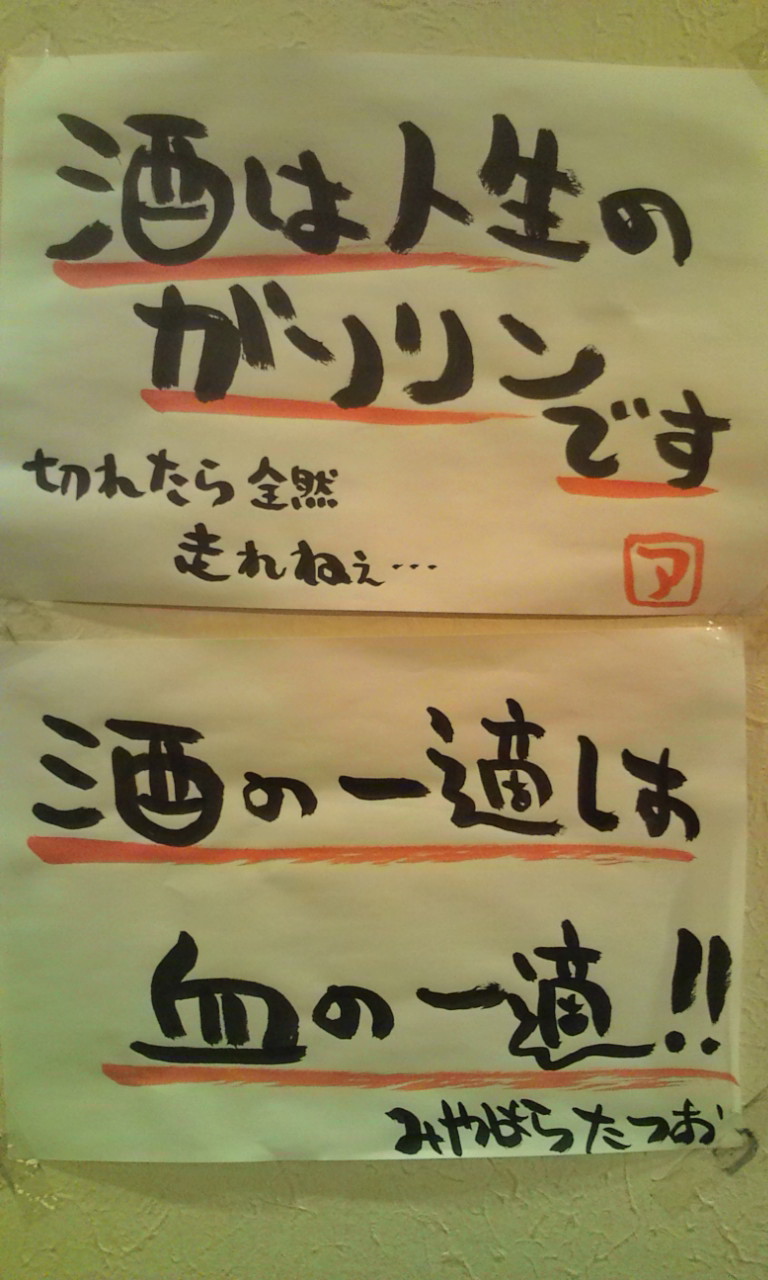 酒は人生の
ガソリン
です
切れたら全然
走れねぇ…
ア
酒の一適は
血の一適!!
みやばらたつお